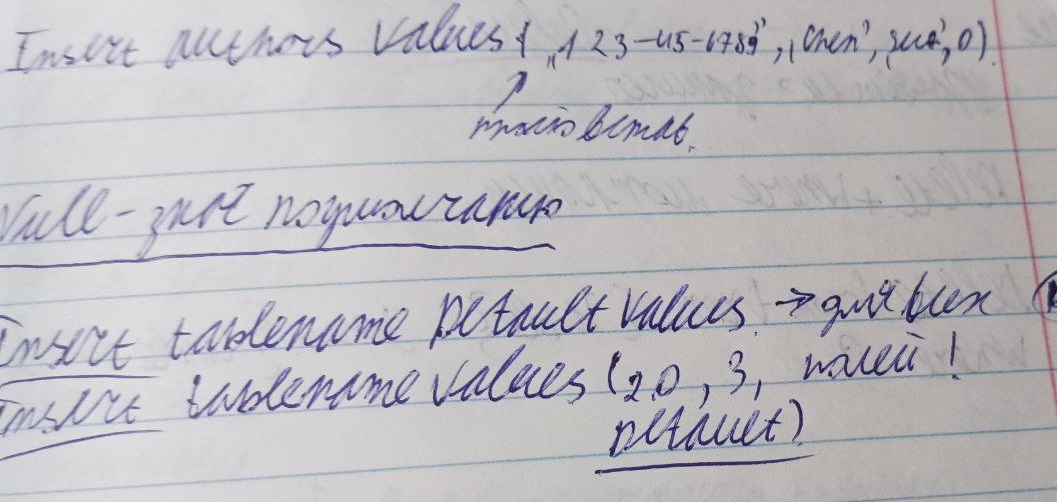 Insert authors values („123-45-6789", 'Chen', 0)
встав.
Null - знач поумолчанию
Insert tablename Default values. → для всех
Insert tablename values (20, 3, полей!
default)